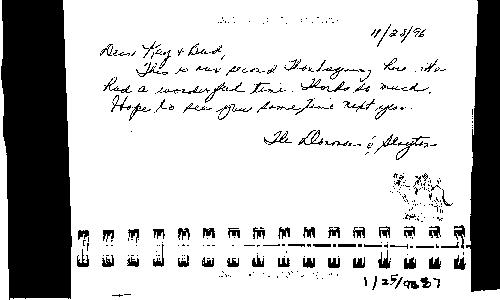 11/28/96
Dear Kay & Bud,
This is our second Thanksgiving here. We
had a wonderful time. Thanks so much.
Hope to see you sometime next year.
The Donovan & Slayton
1/25/97